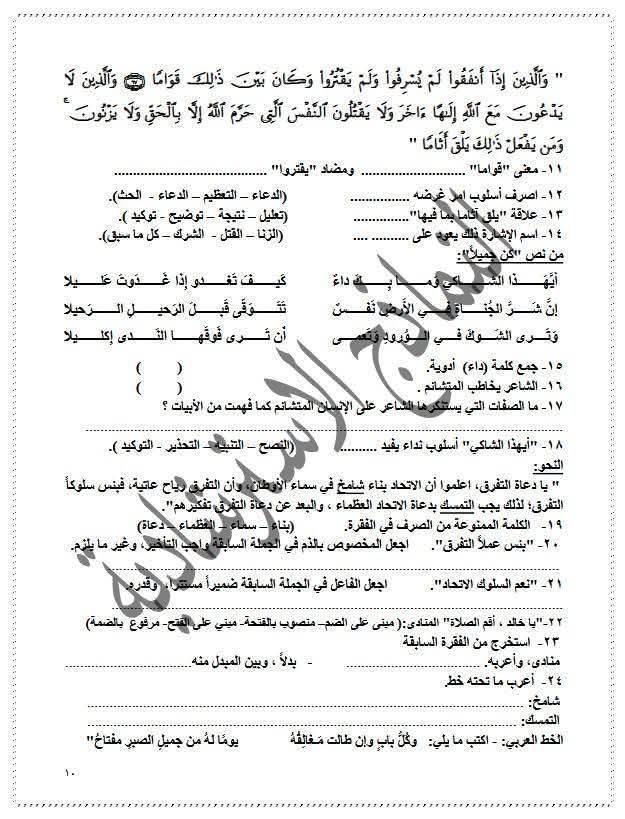 " وَٱلَّذِينَ إِذَآ أَنفَقُوا۟ لَمْ يُسْرِفُوا۟ وَلَمْ يَقْتُرُوا۟ وَكَانَ بَيْنَ ذَٰلِكَ قَوَامًا ۝٦٧ وَٱلَّذِينَ لَا
يَدْعُونَ مَعَ ٱللَّهِ إِلَٰهًا ءَاخَرَ وَلَا يَقْتُلُونَ ٱلنَّفْسَ ٱلَّتِى حَرَّمَ ٱللَّهُ إِلَّا بِٱلْحَقِّ وَلَا يَزْنُونَ ۚ
وَمَن يَفْعَلْ ذَٰلِكَ يَلْقَ أَثَامًا "
١١- معنى "قواما" .......................... ومضاد "يقتروا" ......................................
١٢- اصرف أسلوب امر غرضه ............... (الدعاء – التعظيم – الدعاء - الحث).
١٣- علاقة "يلق آثاما بما فيها"............... (تعليل – نتيجة – توضيح - توكيد ).
١٤- اسم الإشارة ذلك يعود على .......... .... (الزنا – القتل - الشرك – كل ما سبق).
من نص "كن جميلاً":
أيُّهَذا الشَّاكي وَمَا بِكَ داءٌ كَيفَ تَغْدو إذا غَدَوتَ عَليلا
إنَّ شَرَّ الجُناةِ في الأرضِ نَفْسٌ تَتَوَقَّى قَبلَ الرَحيلِ الرَحيلا
وَتَرى الشَوكَ في الوُرودِ وَتَعمى أن تَرى فَوقَها النَّدى إكليلا
١٥- جمع كلمة (داء) أدوية. ( )
١٦- الشاعر يخاطب المتشائم . ( )
١٧- ما الصفات التي يستنكرها الشاعر على الإنسان المتشائم كما فهمت من الأبيات ؟
......................................................................................................................
١٨- "أيهذا الشاكي" أسلوب نداء يفيد .......... (النصح – التنبيه – التحذير - التوكيد ).
النحو:
" يا دعاة التفرق، اعلموا أن الاتحاد بناء شامخ في سماء الأوطان، وأن التفرق رياح عاتية، فبئس سلوكاً
التفرق؛ لذلك يجب التمسك بدعاة الاتحاد العظماء ، والبعد عن دعاة التفرق تفكيرهم".
١٩- الكلمة الممنوعة من الصرف في الفقرة. (بناء – سماء – العظماء – دعاة)
٢٠- "بئس عملاً التفرق". اجعل المخصوص بالذم في الجملة السابقة واجب التأخير، وغير ما يلزم.
......................................................................................................................
٢١- "نعم السلوك الاتحاد". اجعل الفاعل في الجملة السابقة ضميراً مستتراً، وقدره.
......................................................................................................................
٢٢-"يا خالد ، أقم الصلاة" المنادى:( مبنى على الضم– منصوب بالفتحة- مبني على الفتح- مرفوع بالضمة)
٢٣- استخرج من الفقرة السابقة
منادى، وأعربه. ........................................ - بدلاً ، وبين المبدل منه...............................
٢٤- أعرب ما تحته خط.
شامخ: ..............................................................................................................
التمسك: ............................................................................................................
الخط العربي: - اكتب ما يلي: وكُلُّ بابٍ وإن طالت مَغالِقُهُ يومًا لهُ من جميلِ الصبرِ مفتاحُ"
١٠
النماذج الاسترشادية